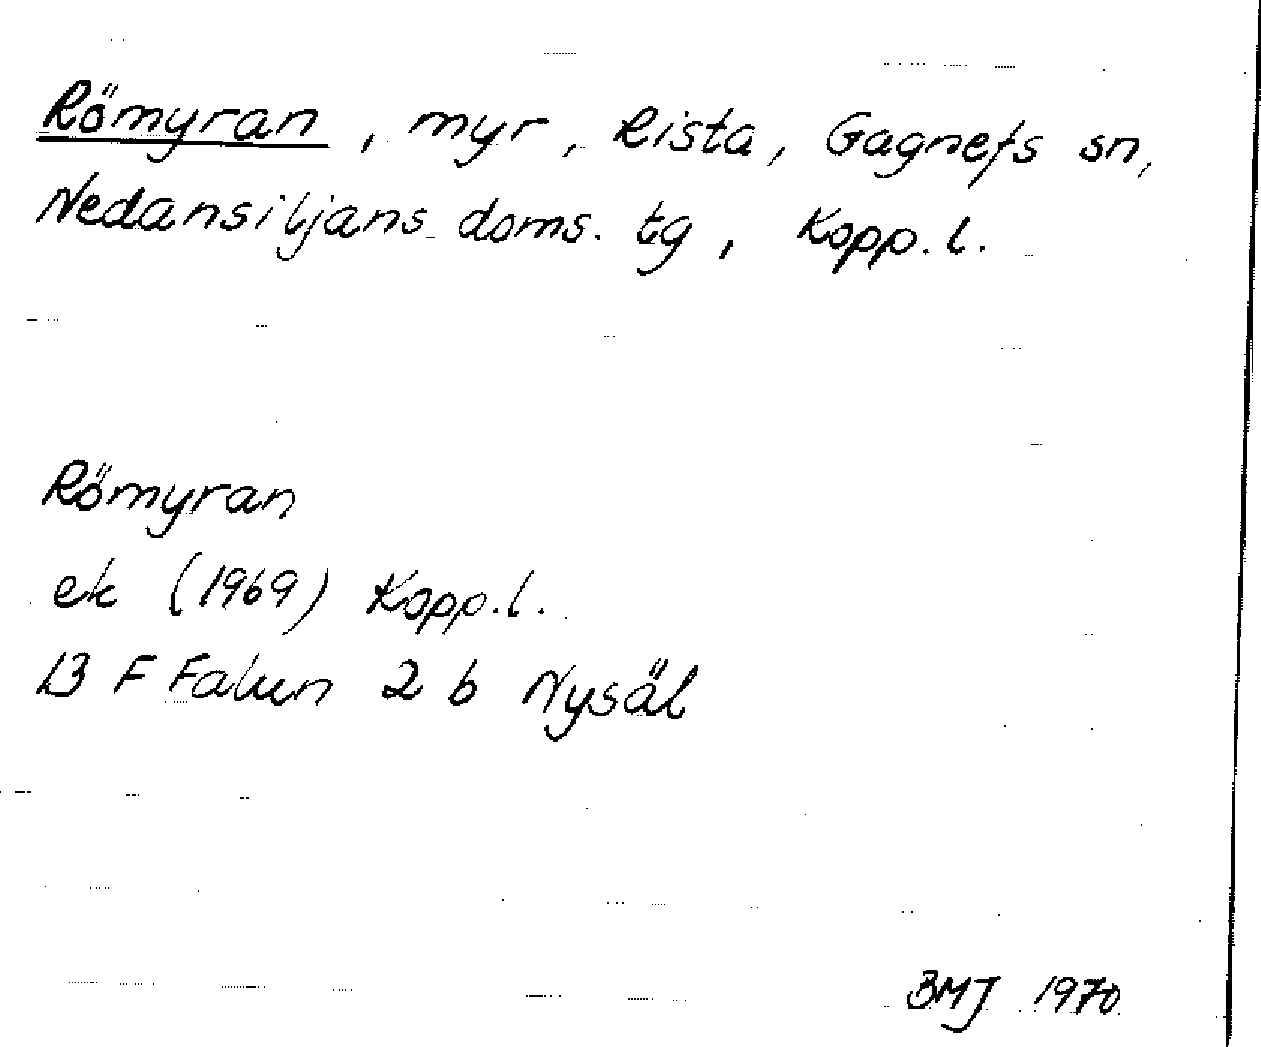 Römyran, myr, Rista, Gagnefs sn,
Nedansiljans doms. tg, Kopp. l.
Römyran
ek (1969) Kopp. l.
13 F Falun 2 b Nysäl
BMJ 1970